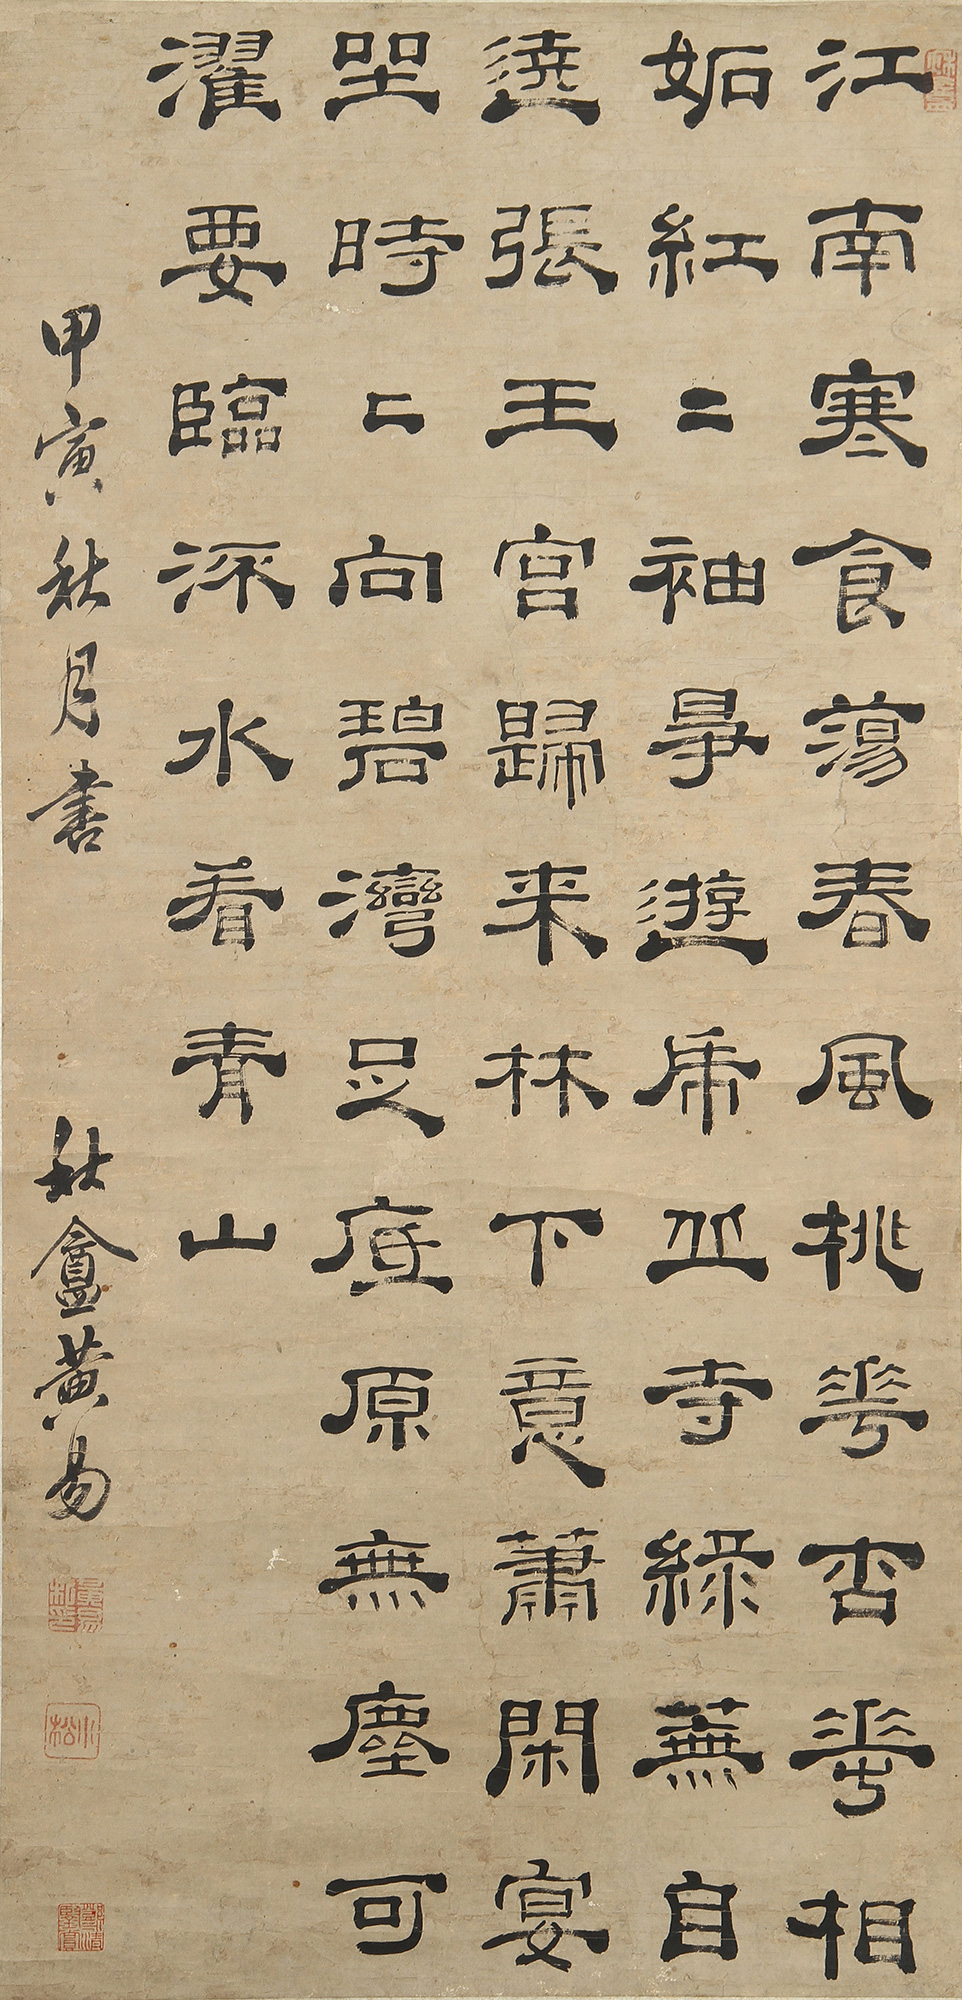 江南寒食蕩春風桃華杏華相
妬紅〻袖爭遊虎丘寺綠蕪自
遶張王宮歸来林下意蕭閑宴
坐時〻向碧灣足底原無塵可
濯要臨流水看青山
甲寅秋月書 秋盦黃易
小松